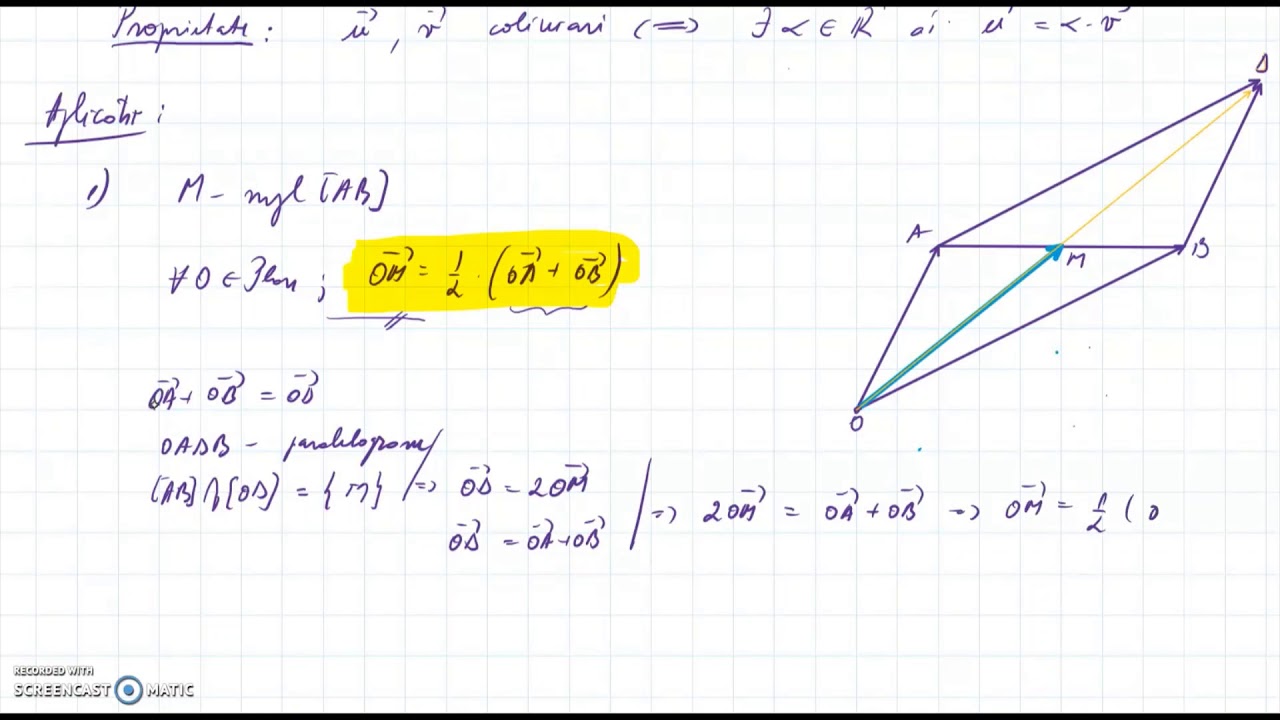 Proprietate: u⃗, v⃗ coliniari ⟺ ∃ α ∈ ℝ aî u⃗ = α · v⃗
Aplicații:
1) M - mijl [AB]
∀ O ∈ Plan ; OM⃗ = 1/2 · (OA⃗ + OB⃗)
OA⃗ + OB⃗ = OD⃗
OADB - paralelogram
[AB] ∩ [OD] = {M} => OD⃗ = 2OM⃗
OD⃗ = OA⃗ + OB⃗ => 2OM⃗ = OA⃗ + OB⃗ => OM⃗ = 1/2 ( O
D
A
B
M
O
RECORDED WITH
SCREENCAST MATIC